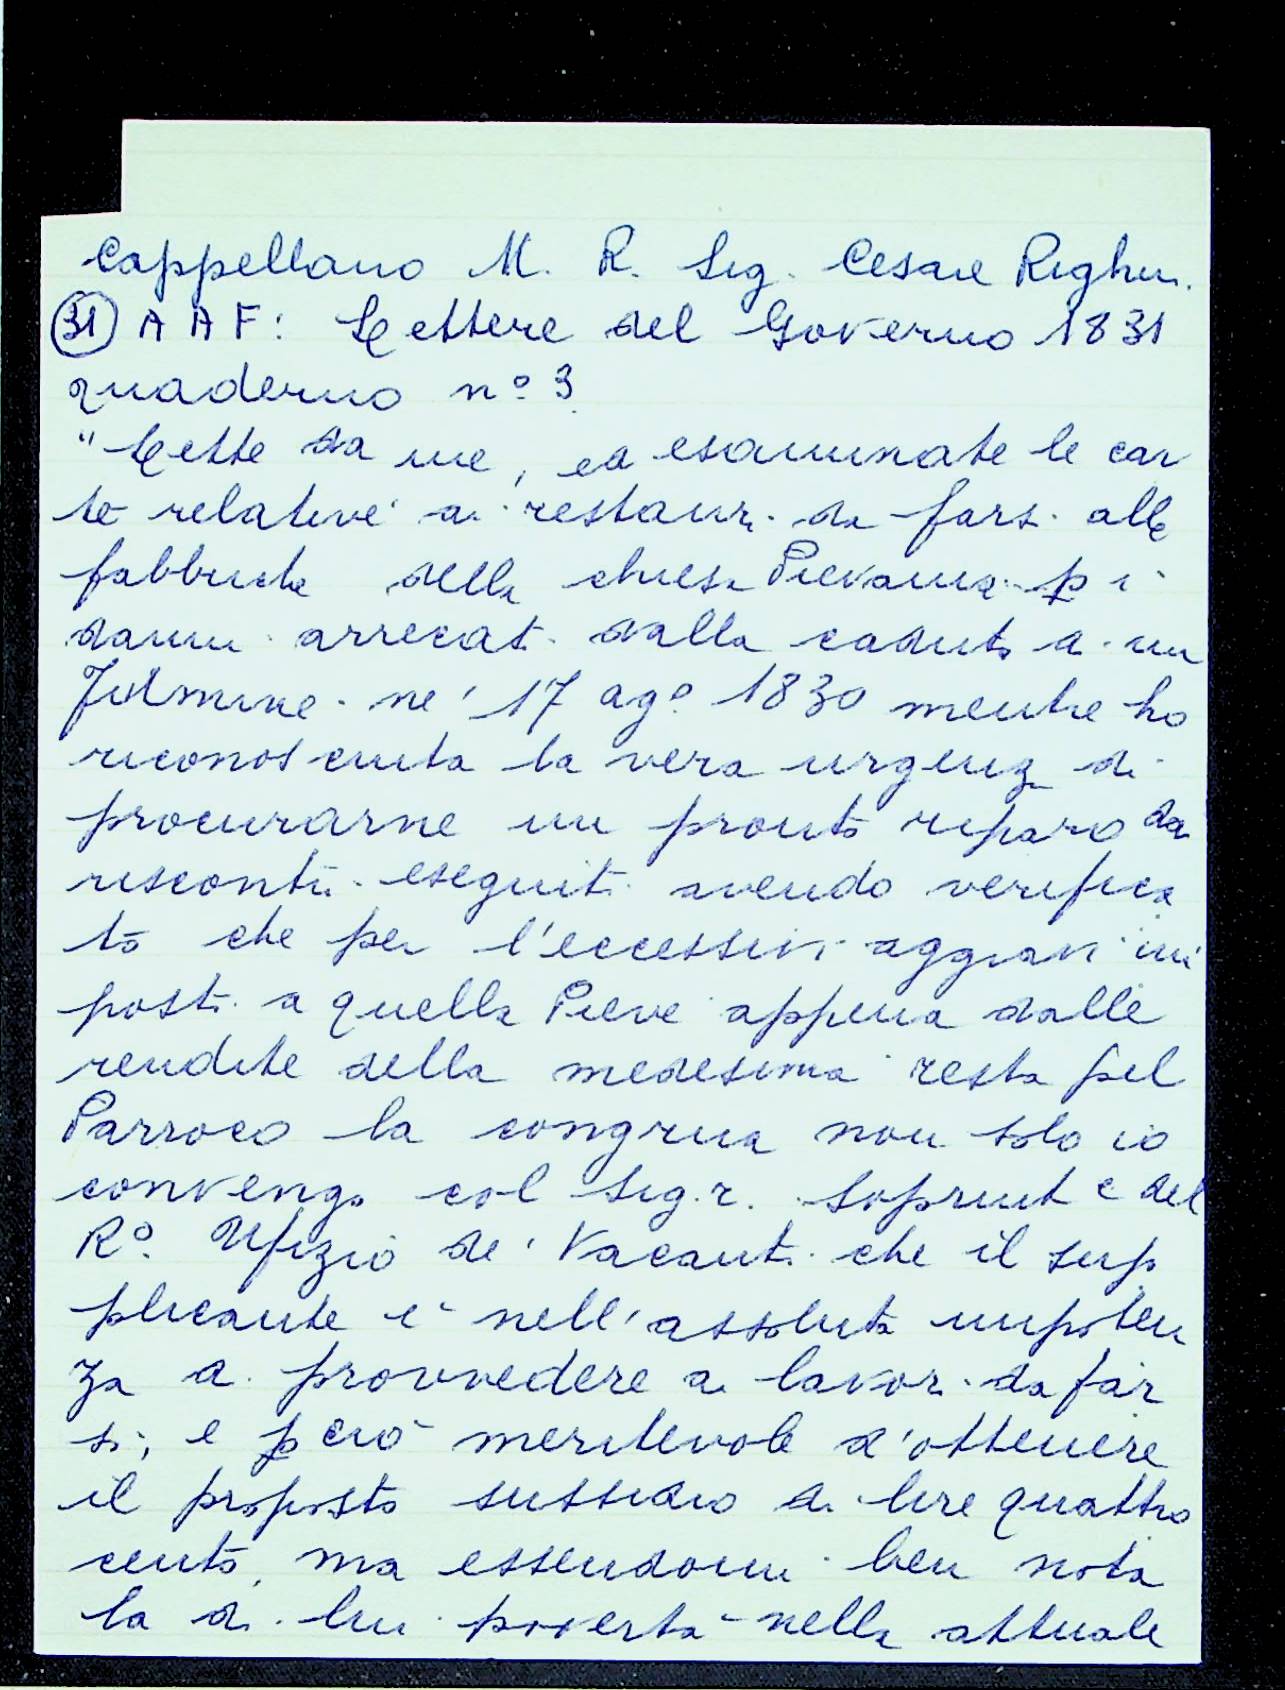 Cappellano M. R. Sig. Cesare Righini.
31 A A F: Lettere del Governo 1831
quaderno n° 3
"Lette da me, ed esaminate le car
te relative ai restauri da farsi alle
fabbriche della chiesa Pievania p i
danni arrecati dalla caduta di un
Fulmine ne' 17 ag° 1830 mentre ho
riconosciuta la vera urgenza di
procurarne un pronto riparo da
riscontri eseguiti avendo verifica
to che per l'eccessivi aggravi im
posti a quella Pieve appena dalle
rendite della medesima resta pel
Parroco la congrua non solo io
convengo col Sig.r. Soprint e del
R° Ufizio de' Vacanti che il sup
plicante è nell'assoluta impoten
za di provvedere ai lavori da far
si, e perciò meritevole d'ottenere
il proposto sussidio di lire quattro
cento, ma essendomi ben nota
la di lui povertà nella attuale